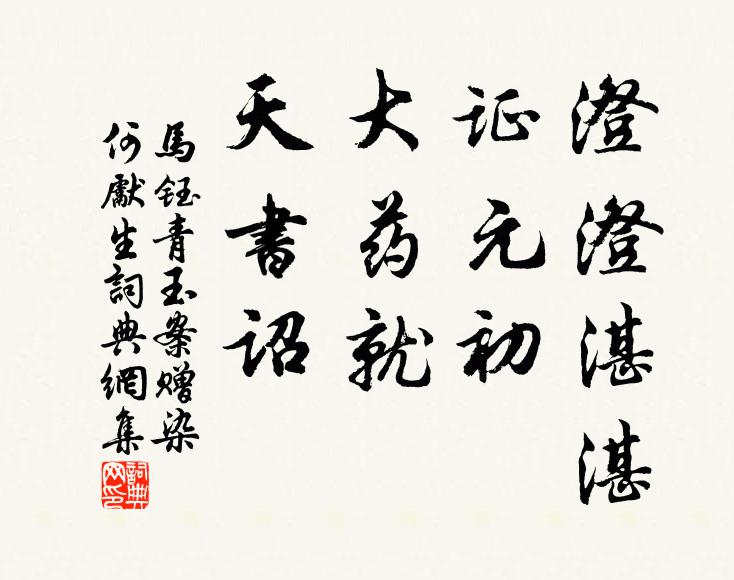 澄澄湛湛
证元初
大药就
天書詔
馬鈺青玉案赠染
何獻生詞典網集
詞典网印